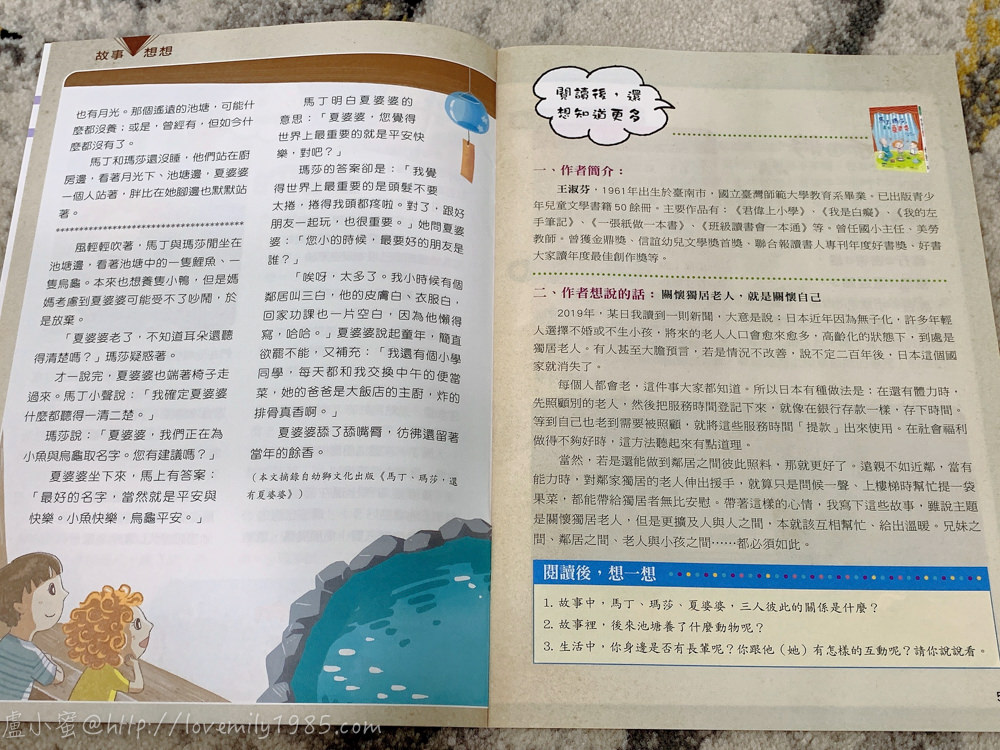 故事 想想
也有月光。那個遙遠的池塘，可能什
麼都沒養；或是，曾經有，但如今什
麼都沒有了。
馬丁和瑪莎還沒睡，他們站在廚
房邊，看著月光下、池塘邊，夏婆婆
一個人站著，胖比在她腳邊也默默站
著。
風輕輕吹著，馬丁與瑪莎閒坐在
池塘邊，看著池塘中的一隻鯉魚、一
隻烏龜。本來也想養隻小鴨，但是媽
媽考慮到夏婆婆可能受不了吵鬧，於
是放棄。
「夏婆婆老了，不知道耳朵還聽
得清楚嗎？」瑪莎疑惑著。
才一說完，夏婆婆也端著椅子走
過來。馬丁小聲說：「我確定夏婆婆
什麼都聽得一清二楚。」
瑪莎說：「夏婆婆，我們正在為
小魚與烏龜取名字。您有建議嗎？」
夏婆婆坐下來，馬上有答案：
「最好的名字，當然就是平安與
快樂。小魚快樂，烏龜平安。」
馬丁明白夏婆婆的
意思：「夏婆婆，您覺得
世界上最重要的就是平安快
樂，對吧？」
瑪莎的答案卻是：「我覺
得世界上最重要的是頭髮不要
太捲，捲得我頭都疼啦。對了，跟好
朋友一起玩，也很重要。」她問夏婆
婆：「您小的時候，最要好的朋友是
誰？」
「唉呀，太多了。我小時候有個
鄰居叫三白，他的皮膚白、衣服白，
回家功課也一片空白，因為他懶得
寫，哈哈。」夏婆婆說起童年，簡直
欲罷不能，又補充：「我還有個小學
同學，每天都和我交換中午的便當
菜，她的爸爸是大飯店的主廚，炸的
排骨真香啊。」
夏婆婆舔了舔嘴脣，彷彿還留著
當年的餘香。
（本文摘錄自幼獅文化出版《馬丁、瑪莎，還
有夏婆婆》）
閱讀後，還
想知道更多
一、作者簡介：
王淑芬，1961年出生於臺南市，國立臺灣師範大學教育系畢業。已出版青少
年兒童文學書籍 50 餘冊。主要作品有：《君偉上小學》、《我是白癡》、《我的左
手筆記》、《一張紙做一本書》、《班級讀書會一本通》等。曾任國小主任、美勞
教師。曾獲金鼎獎、信誼幼兒文學獎首獎、聯合報讀書人專刊年度好書獎、好書
大家讀年度最佳創作獎等。
二、作者想說的話：關懷獨居老人，就是關懷自己
2019年，某日我讀到一則新聞，大意是說：日本近年因為無子化，許多年輕
人選擇不婚或不生小孩，將來的老人人口會愈來愈多，高齡化的狀態下，到處是
獨居老人。有人甚至大膽預言，若是情況不改善，說不定二百年後，日本這個國
家就消失了。
每個人都會老，這件事大家都知道。所以日本有種做法是：在還有體力時，
先照顧別的老人，然後把服務時間登記下來，就像在銀行存款一樣，存下時間。
等到自己也老到需要被照顧，就將這些服務時間「提款」出來使用。在社會福利
做得不夠好時，這方法聽起來有點道理。
當然，若是還能做到鄰居之間彼此照料，那就更好了。遠親不如近鄰，當有
能力時，對鄰家獨居的老人伸出援手，就算只是問候一聲、上樓梯時幫忙提一袋
果菜，都能帶給獨居者無比安慰。帶著這樣的心情，我寫下這些故事，雖說主題
是關懷獨居老人，但是更擴及人與人之間，本就該互相幫忙、給出溫暖。兄妹之
間、鄰居之間、老人與小孩之間……都必須如此。
閱讀後，想一想
1. 故事中，馬丁、瑪莎、夏婆婆，三人彼此的關係是什麼？
2. 故事裡，後來池塘養了什麼動物呢？
3. 生活中，你身邊是否有長輩呢？你跟他（她）有怎樣的互動呢？請你說說看。
盧小蜜@http://lovemily1985.com